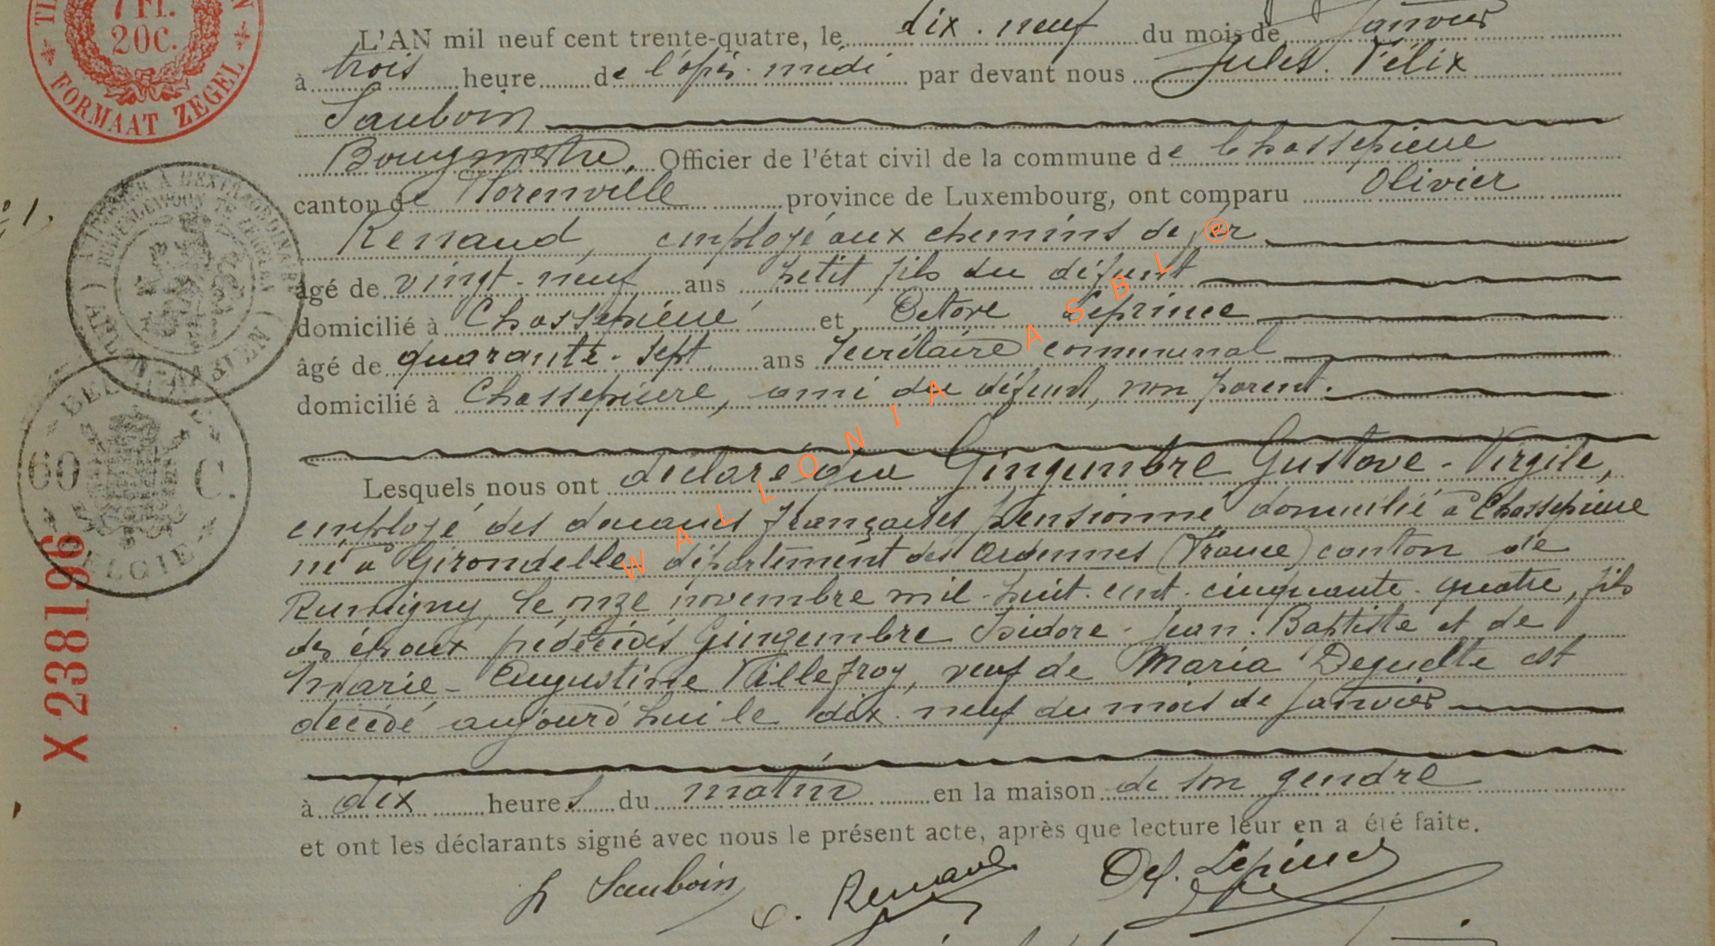 7 Fr.
20C.
FORMAAT ZEGEL
L'AN mil neuf cent trente-quatre, le dix-neuf du mois de Janvier
à trois heure de l'après-midi par devant nous Jules Félix
Sauboin
Bourgmestre, Officier de l'état civil de la commune de Chassepierre
canton de Florenville province de Luxembourg, ont comparu Olivier
Renaud, employé aux chemins de fer
âgé de vingt-neuf ans petit fils du défunt
domicilié à Chassepierre et Octave Lepince
âgé de quarante-sept ans secrétaire communal
domicilié à Chassepierre, ami du défunt, non parent.
Lesquels nous ont déclaré que Gingembre Gustave-Virgile,
employé des douanes françaises pensionné, domicilié à Chassepierre
né à Girondelle, département des Ardennes (France) canton de
Rumigny, le onze novembre mil-huit-cent-cinquante-quatre, fils
des époux prédécédés Gingembre Isidore-Jean-Baptiste et de
Marie-Augustine Villefroy, veuf de Maria Dequelte est
décédé aujourd'hui le dix-neuf du mois de Janvier
à dix heures du matin en la maison de son gendre
et ont les déclarants signé avec nous le présent acte, après que lecture leur en a été faite.
Sauboin
O. Renaud
Oct. Lepince
60 C.
X 238196
WALLONIA ASBL ©